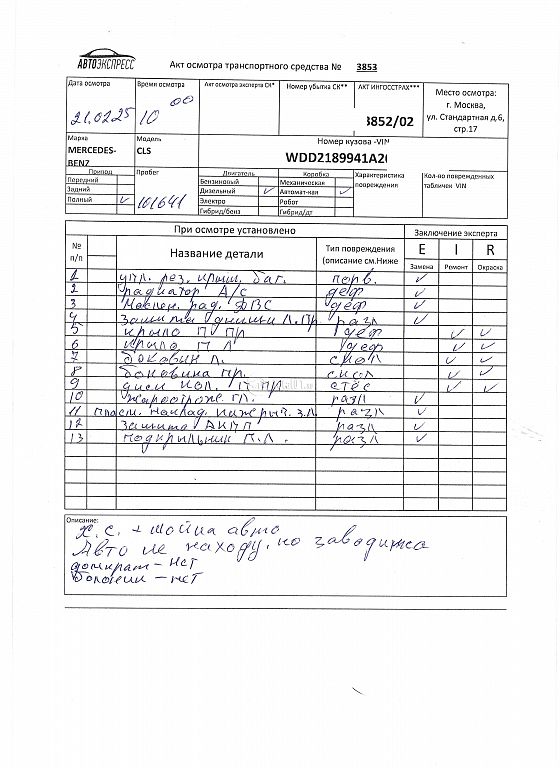 АВТОЭКСПРЕСС
Акт осмотра транспортного средства № 3853
Дата осмотра
Время осмотра
Акт осмотра эксперта СК*
Номер убытка СК**
АКТ ИНГОССТРАХ***
Место осмотра:
г. Москва,
ул. Стандартная д.6,
стр.17
21.02.25
10 00
3852/02
Марка
Модель
Номер кузова -VIN
MERCEDES-BENZ
CLS
WDD2189941A2
Привод
Пробег
Двигатель
Коробка
Характеристика повреждения
Кол-во поврежденных табличек VIN
Передний
Бензиновый
Механическая
Задний
Дизельный ✓
Автомат-кая ✓
Полный ✓
161641
Электро
Робот
Гибрид/бенз
Гибрид/дт
При осмотре установлено
Заключение эксперта
№ п/п
Название детали
Тип повреждения (описание см.Ниже
E
I
R
Замена
Ремонт
Окраска
1 упл. рез. крыш. баг. порв. ✓
2 радиатор А/С деф ✓
3 Маслен. рад. ДВС деф ✓
4 Защита днища Л. Пр разл ✓
5 крыло П ПР деф ✓ ✓
6 крыло П Л деф ✓ ✓
7 боковин Л. скол ✓ ✓
8 боковина пр. скол ✓ ✓
9 диск кол. П ПР стёс ✓ ✓
10 гл. разл ✓
11 пласт. наклад. з.л. разл ✓
12 Защита АКПП разл ✓
13 подкрыльник П.Л. разл ✓
Описание:
Х.С. + мойка авто
Авто не находу, но заводится
домкрат - нет
болонки - нет